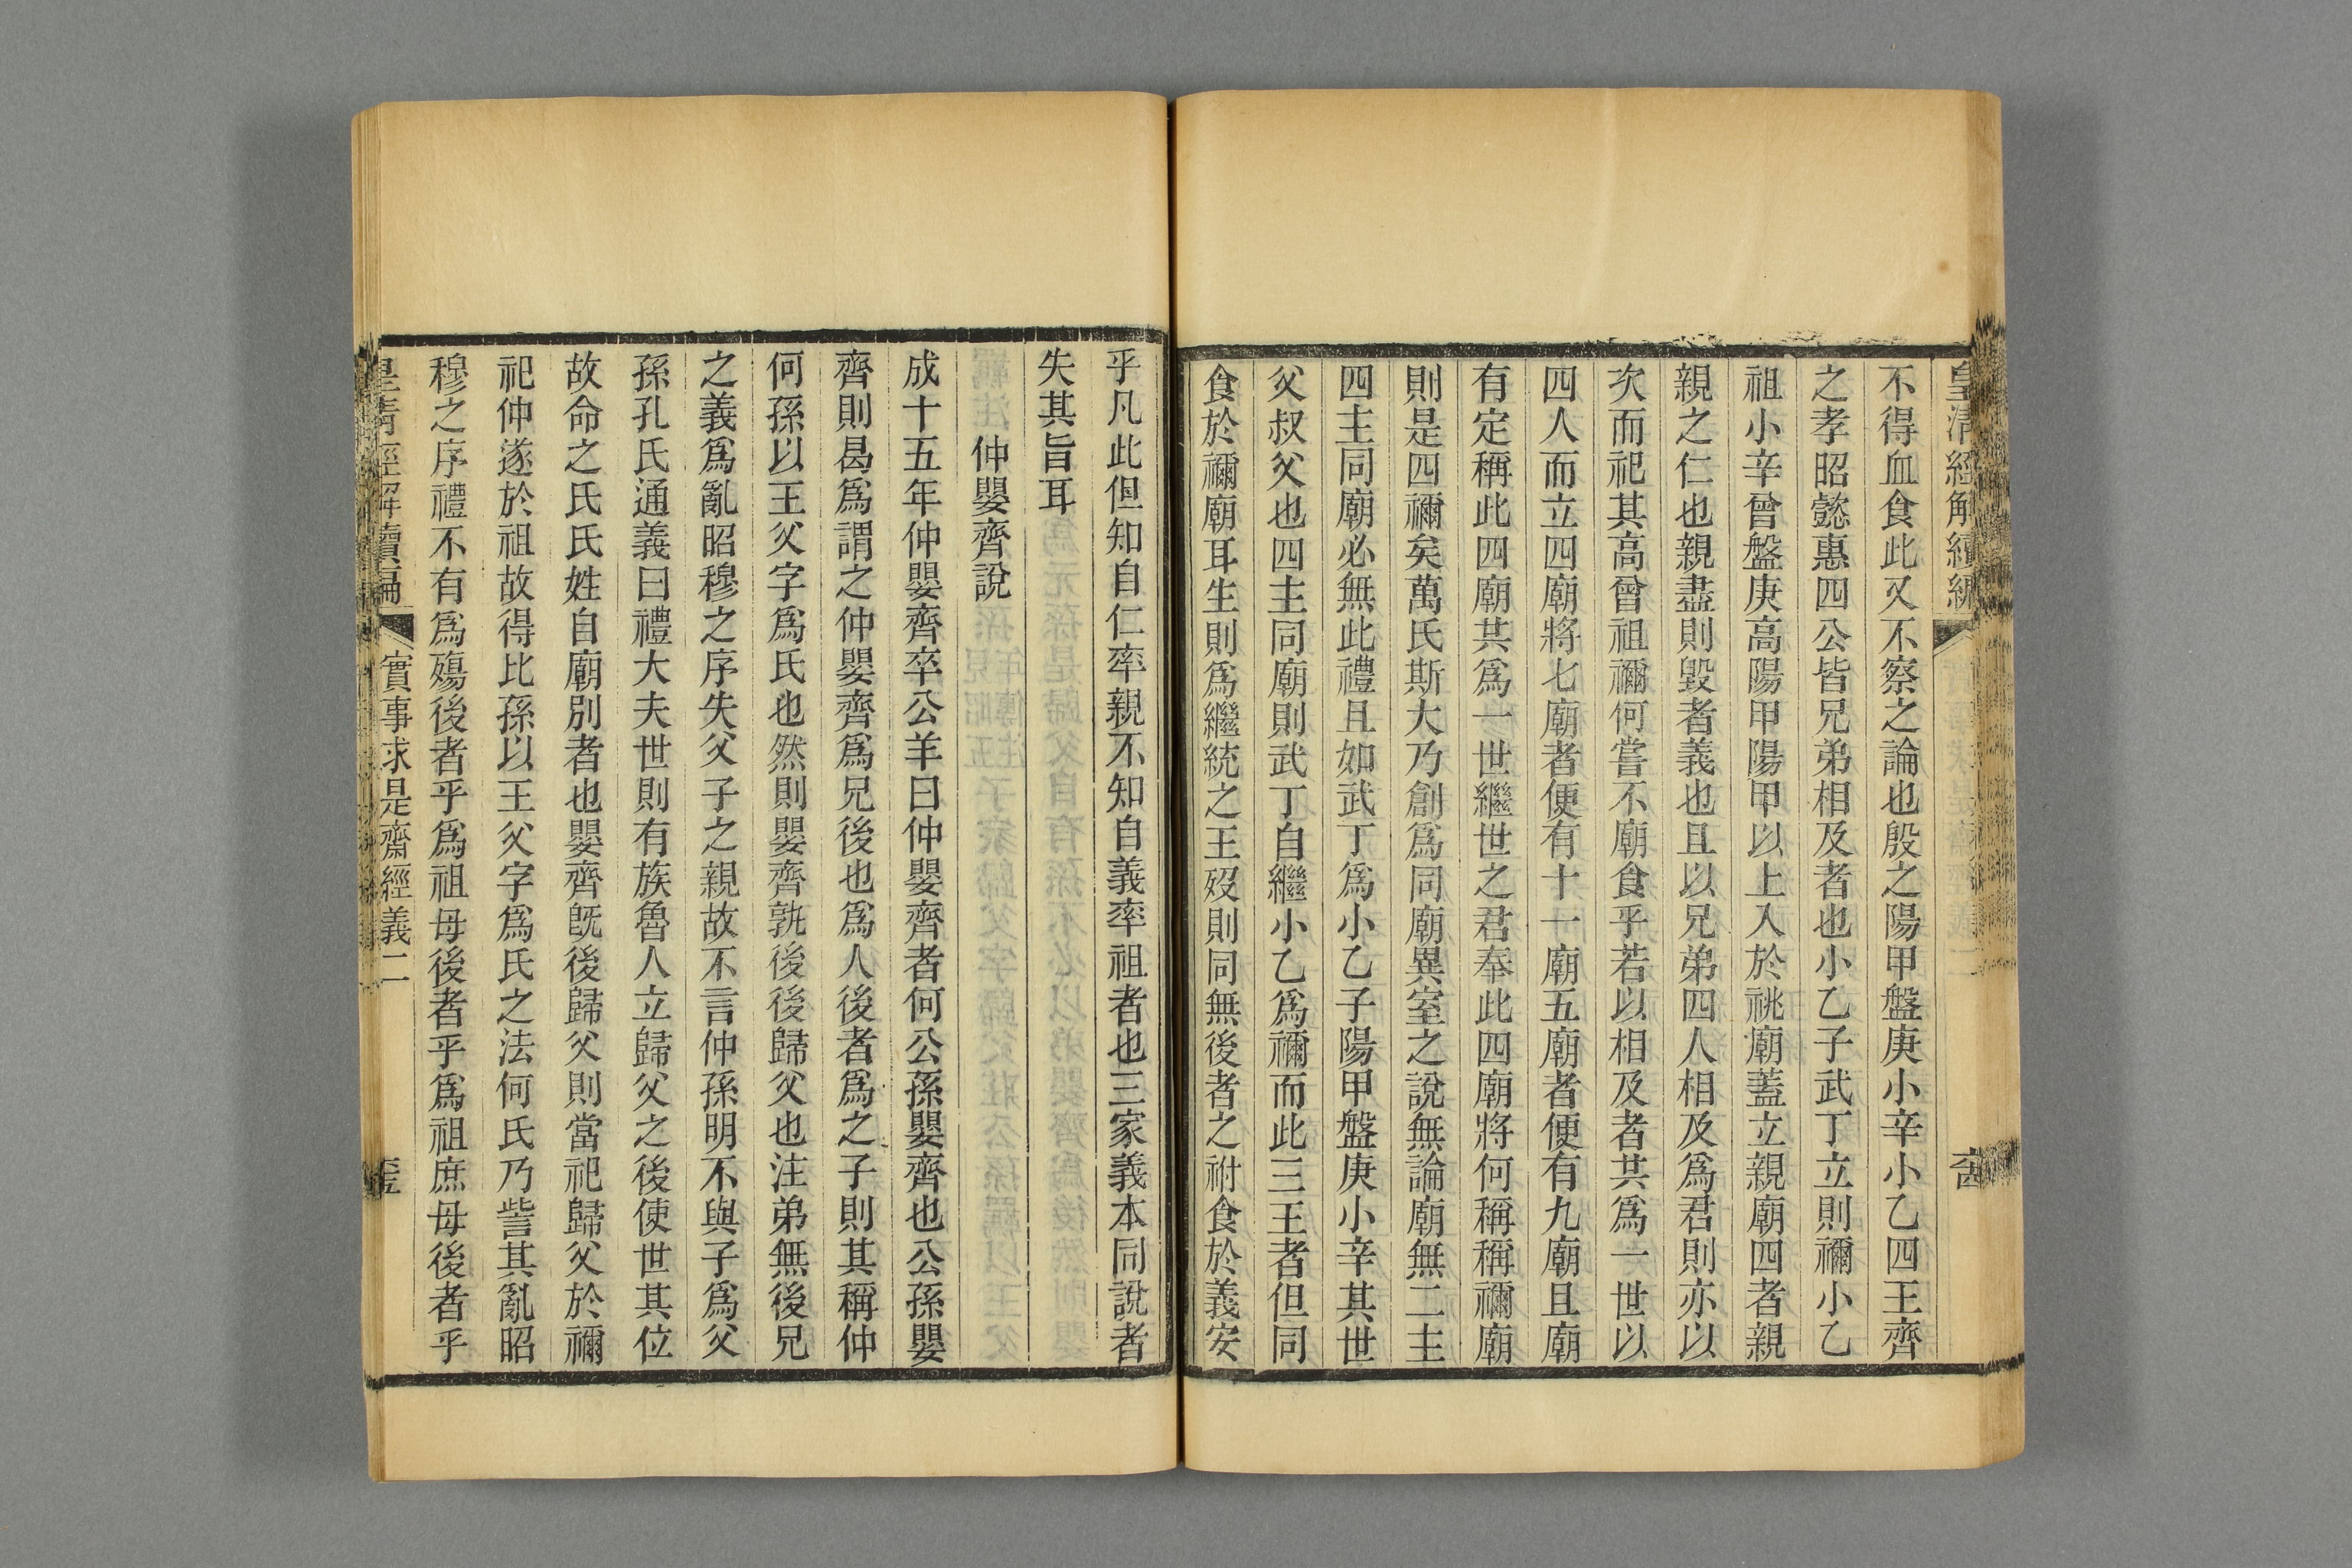 皇清經解續編
不得血食此又不察之論也殷之陽甲盤庚小辛小乙四王齊
之孝昭懿惠四公皆兄弟相及者也小乙子武丁立則禰小乙
祖小辛曾盤庚高陽甲陽甲以上入於祧廟蓋立親廟四者親
親之仁也親盡則毀者義也且以兄弟四人相及爲君則亦以
次而祀其高曾祖禰何嘗不廟食乎若以相及者共爲一世以
四人而立四廟將七廟者便有十一廟五廟者便有九廟且廟
有定稱此四廟其爲一世繼世之君奉此四廟將何稱稱禰廟
則是四禰矣萬氏斯大乃創爲同廟異室之說無論廟無二主
四主同廟必無此禮且如武丁爲小乙子陽甲盤庚小辛其世
父叔父也四主同廟則武丁自繼小乙爲禰而此三王者但同
食於禰廟耳生則爲繼統之王歿則同無後者之祔食於義安
乎凡此但知自仁率親不知自義率祖者也三家義本同說者
失其旨耳
仲嬰齊說
成十五年仲嬰齊卒公羊曰仲嬰齊者何公孫嬰齊也公孫嬰
齊則曷爲謂之仲嬰齊爲兄後也爲人後者爲之子則其稱仲
何孫以王父字爲氏也然則嬰齊孰後後歸父也注弟無後兄
之義爲亂昭穆之序失父子之親故不言仲孫明不與子爲父
孫孔氏通義曰禮大夫世則有族魯人立歸父之後使世其位
故命之氏氏姓自廟別者也嬰齊旣後歸父則當祀歸父於禰
祀仲遂於祖故得比孫以王父字爲氏之法何氏乃訾其亂昭
穆之序禮不有爲殤後者乎爲祖母後者乎爲祖庶母後者乎
皇清經解續編
實事求是齋經義二